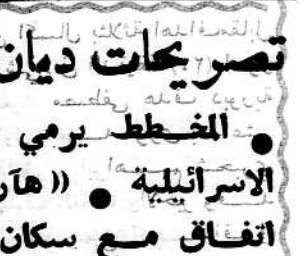 تصريحات ديان
● المخطط يرمي
الاسرائيلية ● ((هآر
اتفاق مع سكان